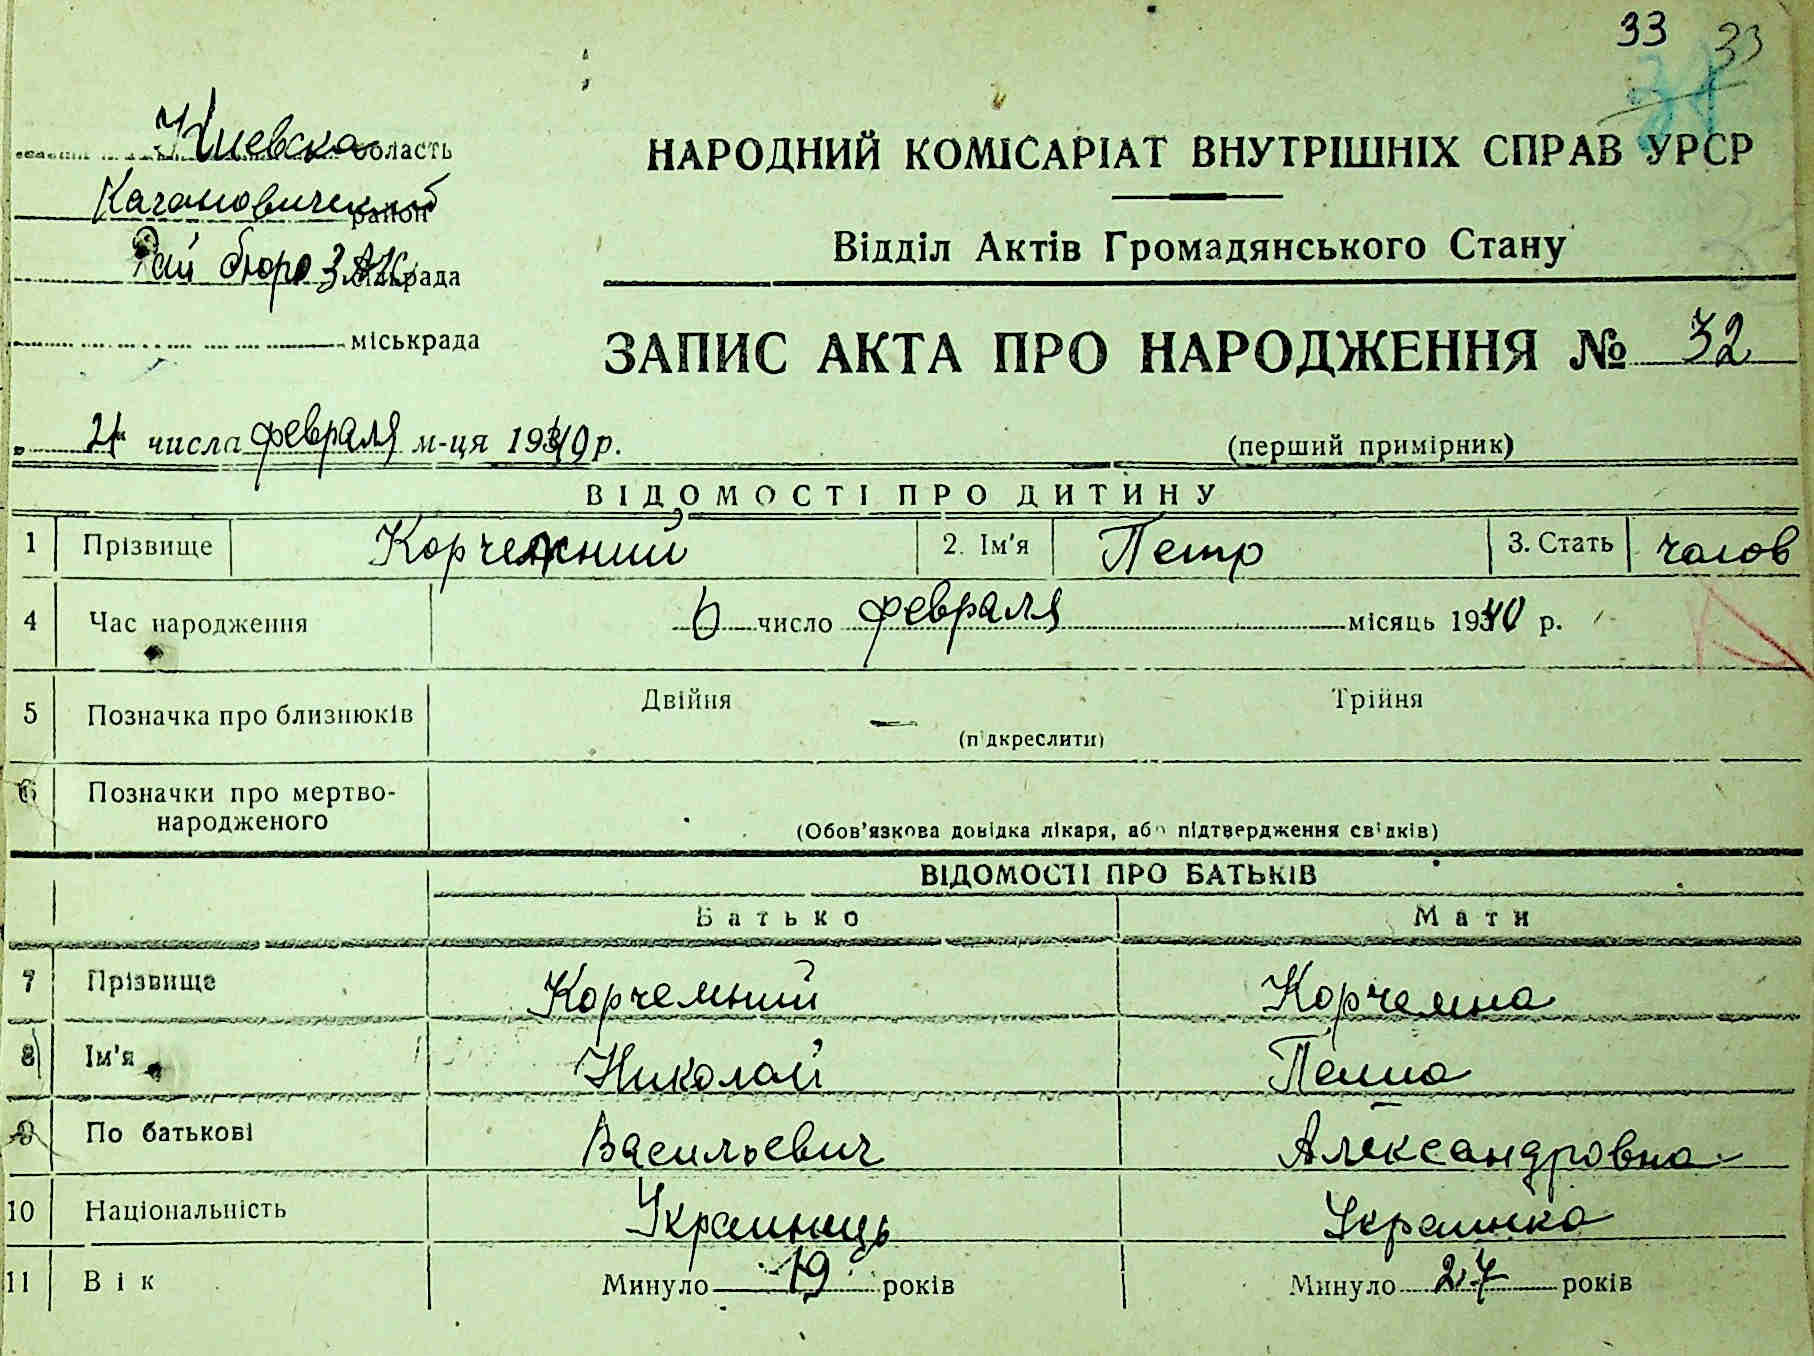 33 33
Киевска область
Кагановический район
Рай бюро ЗАГС сільрада
міськрада
НАРОДНИЙ КОМІСАРІАТ ВНУТРІШНІХ СПРАВ УРСР
Відділ Актів Громадянського Стану
ЗАПИС АКТА ПРО НАРОДЖЕННЯ № 32
числа февраля м-ця 1940 р.
(перший примірник)
ВІДОМОСТІ ПРО ДИТИНУ
1 Прізвище Корчемний 2. Ім'я Петр 3. Стать чолов
4 Час народження 6 число февраля місяць 1940 р.
5 Позначка про близнюків Двійня — Трійня
(підкреслити)
6 Позначки про мертво-
народженого
(Обов'язкова довідка лікаря, або підтвердження свідків)
ВІДОМОСТІ ПРО БАТЬКІВ
Батько Мати
7 Прізвище Корчемний Корчемна
8 Ім'я Николай
9 По батькові Васильевич Александровна
10 Національність Украинець Украинка
11 Вік Минуло 19 років Минуло 27 років